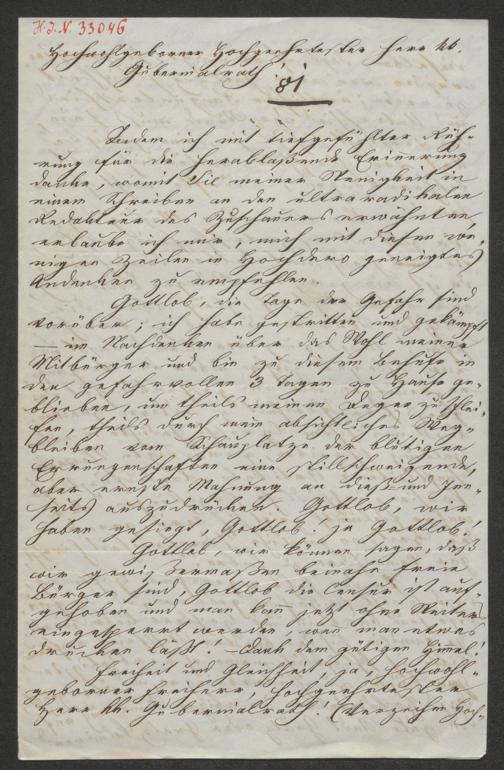 H.I.N. 33046
Hochwohlgeborner Hochgeehrtester Herr kk.
Gubernialrath!
81
Indem ich mit tiefgefühlter Rüh-
rung für die herablaßende Erinerung
danke, womit Sie meiner Wenigkeit in
einem Schreiben an den ultraradikalen
Redakteur des Zuschauers erwähnten,
erlaube ich mir, mich mit diesen we-
nigen Zeilen in Hochdero geneigtes
Andenken zu empfehlen.
Gottlob, die Tage der Gefahr sind
vorüber; ich habe gestritten und gekämpft
— im Nachdenken über das Wohl meiner
Mitbürger und bin zu diesem Behufe in
den gefahrvollen 3 Tagen zu Hause ge-
blieben, um theils meinen Degen zu schlei-
fen, theils durch mein absichtliches Weg-
bleiben vom Schauplatze der blutigen
Errungenschaften eine stillschweigende,
aber ernste Mahnung an dieß- und jen-
seits auszudrücken. Gottlob, wir
haben gesiegt, Gottlob! ja Gottlob!
Gottlob wir können sagen, daß
wir gewissermaßen beinahe freie
Bürger sind, Gottlob die Censur ist auf-
gehoben und man kan jetzt ohne Weiters
eingesperrt werden, wen man etwas
drucken läßt! — Dank dem gütigen Himel!
Freiheit und Gleichheit, ja, Hochwohl-
geborner Freiherr, Hochgeehrtester
Herr kk. Gubernialrath! (Verzeihen Hoch-